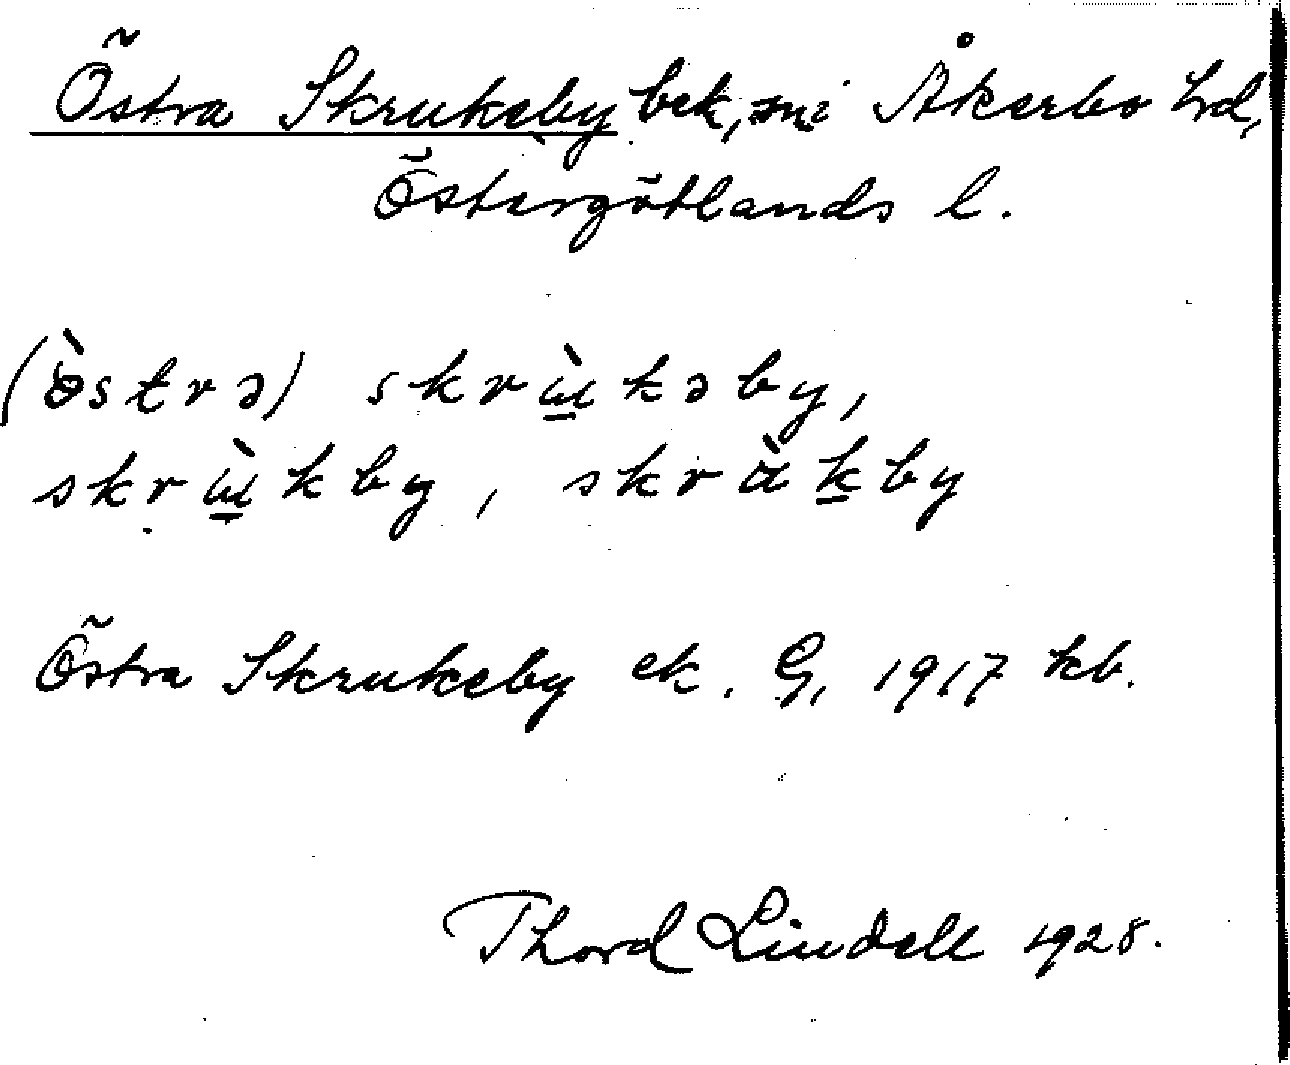 Östra Skrukeby bek, sn i Åkerbo hrd,
Östergötlands l.
(ö̀strə) skrɯ̱̀kəby,
skrɯ̱̀kby, skrɑ̀ḵby
Östra Skrukeby ek. G, 1917 kb.
Thord Lindell 1928.